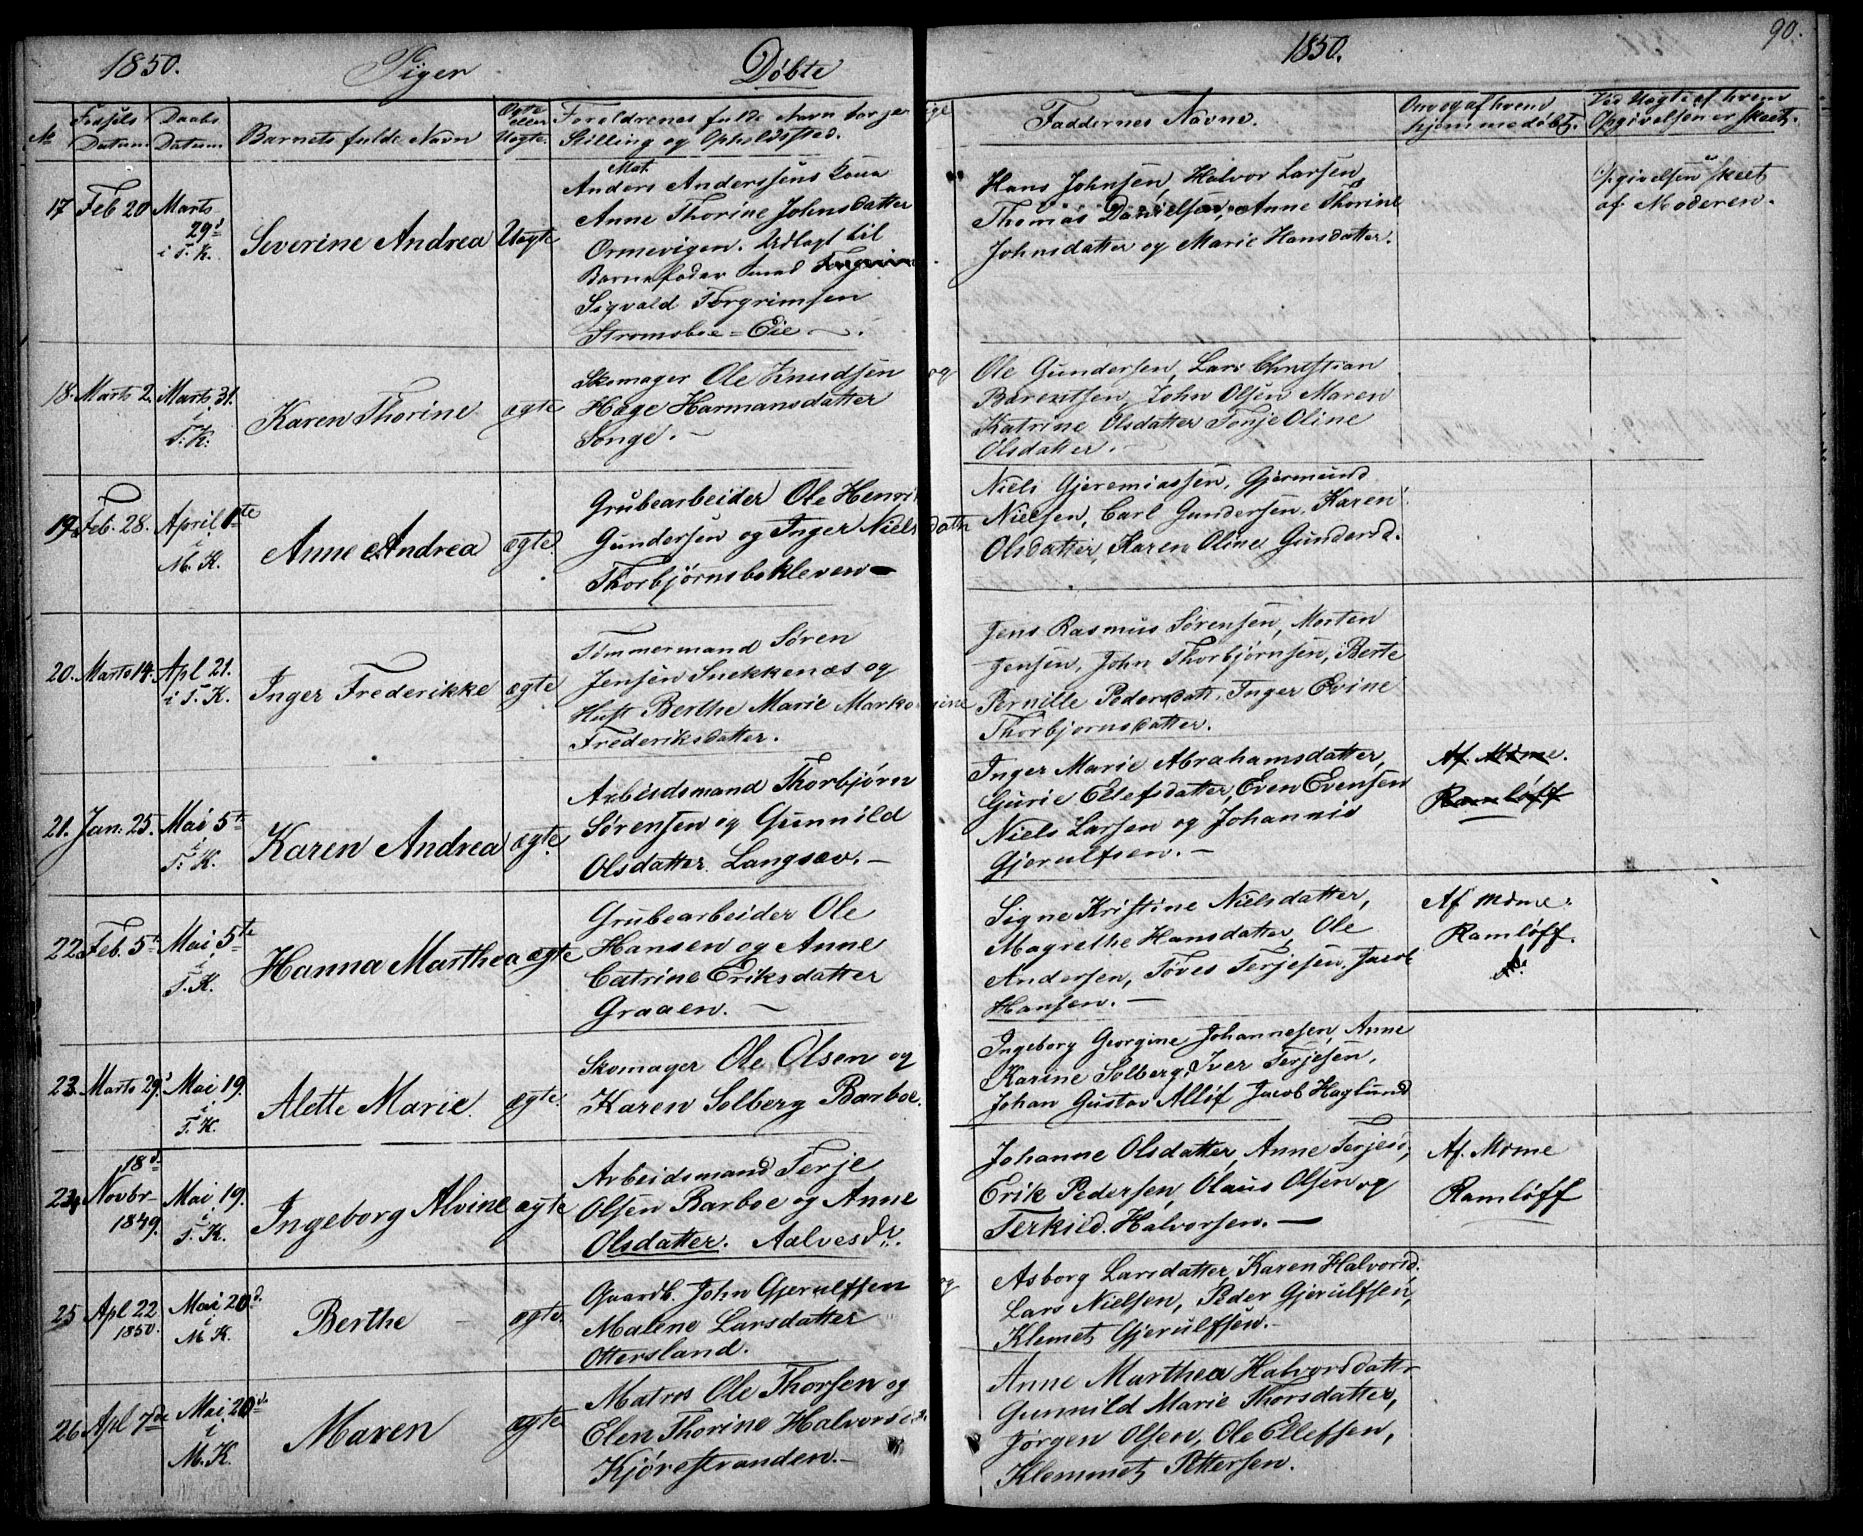 1850.
Piger
Døbte
1850.
90.
No
Fødsels Datum
Daabs Datum
Barnets fulde Navn
Ægte eller Uægte
Forældrenes fulde Navn
Stilling og Opholdssted.
Faddernes Navne.
Om og af hvem hjemmedøbt.
Ved Uægte af hvem Opgivelsen er skeet.
17
Feb 20
Marts
29d
i T. K.
Severine Andrea
Uægte
Mat.
Anders Anderssens Kone
Anne Thorine Johnsdatter
Ormevigen. Udlagt til
Barnefader
Sigvald Torgrimsen
Stromsboe = Eie
Hans Johnsen, Halvor Larsen,
Thomas Danielsen, Anne Thorine
Johnsdatter og Marie Hansdatter.
Opgivelsen er skeet
af Moderen.
18.
Marts 2.
Marts 31.
i
T. K.
Karen Thorine
ægte
Skomager Ole Knudsen og
Hæge Harmansdatter
Songe.
Ole Gundersen, Lars Christian
Barentsen, John Olsen Maren
Katrine Olsdatter Tonje Oline
Olsdatter.
19.
Feb. 28.
April 1te
i
M. K.
Anne Andrea
ægte
Grubearbeider Ole Henri
Gundersen og Inger Nielsdatr
Thorbjørnsbokleven
Niels Gjeremiassen, Gjermund
Nielsen, Carl Gundersen, Karen
Olsdatter, Karen Oline Gundersd.
20.
Marts 14.
Apl 21.
i T. K.
Inger Frederikke
ægte
Tømmermand Søren
Jensen Snekkenæs og
Hust Berthe Marie Markogine
Frederiksdatter.
Jens Rasmus Sørensen, Morten
Jensen, John Thorbjørnsen, Berte
Pernille Pedersdatt, Inger Evine
Thorbjørnsdatter.
21.
Jan. 25.
Mai 5te
i
T. K.
Karen Andrea
ægte
Arbeidsmand Thorbjørn
Sørensen og Gunnild
Olsdatter Langsæv.
Inger Marie Abrahamsdatter,
Gurie Ellefsdatter, Even Evensen
Niels Larsen og Johannis
Gjerulfsen.
Af Mdme.
Ramløff
22.
Feb. 5te
Mai 5te
i
T. K.
Hanna Marthea
ægte
Grubearbeider Ole
Hansen og Anne
Catrine Eriksdatter
Graaen.
Signe Kristine Nielsdatter,
Magrethe Hansdatter, Ole
Andersen, Toves Terjesen, Jacob
Hansen.
Af Mdme.
Ramløff.
23.
Marts 29d
Mai 19.
i
T. K.
Alette Marie.
ægte.
Skomager Ole Olsen og
Karen Solberg Barboe.
Ingeborg Georgine Johannesen, Anne
Karine Solberg, Iver Terjesen,
Johan Gustav Alløf Jacob Haglund
24
18d
Novbr
1849.
Mai 19.
i
T. K.
Ingeborg Alvine
ægte
Arbeidsmand Terje
Olsen Barboe og Anne
Olsdatter. Aalvesdr.
Johanne Olsdatter, Anne Terjesd,
Erik Pedersen, Olaus Olsen og
Terkild Halvorsen.
Af. Mdme
Ramløff
25
Apl 22
1850.
Mai 20d.
i
M. K.
Berthe
ægte.
Gaardb. John Gjerulfsen og
Malene Larsdatter
Ottersland.
Asborg Larsdatter, Karen Halvorsd.
Lars Nielsen, Peder Gjerulfsen,
Klemet Gjerulfsen.
26
Apl 7de
Mai 20d.
i
M. K.
Maren
ægte
Matros Ole Thorsen og
Elen Thorine Halvorsd.
Kjørestranden.
Anne Marthea Halvorsdatr
Gunnild Marie Thorsdatter,
Jørgen Olsen, Ole Ellefsen,
Klemmet Pettersen.